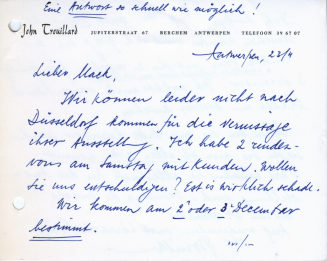 Eine Antwort so schnell wie möglich!
John Trouillard JUPITERSTRAAT 67 BERCHEM ANTWERPEN TELEFOON 39 67 07
Antwerpen, 23/4
Lieber Mack,
Wir können leider nicht nach
Düsseldorf kommen für die Vernissage
ihrer Ausstellung. Ich habe 2 rendez-
vous am Samstag mit Kunden. Wollen
Sie uns entschuldigen? Est is wirklich schade.
Wir kommen am 2° oder 3° Decembar
bestimmt.